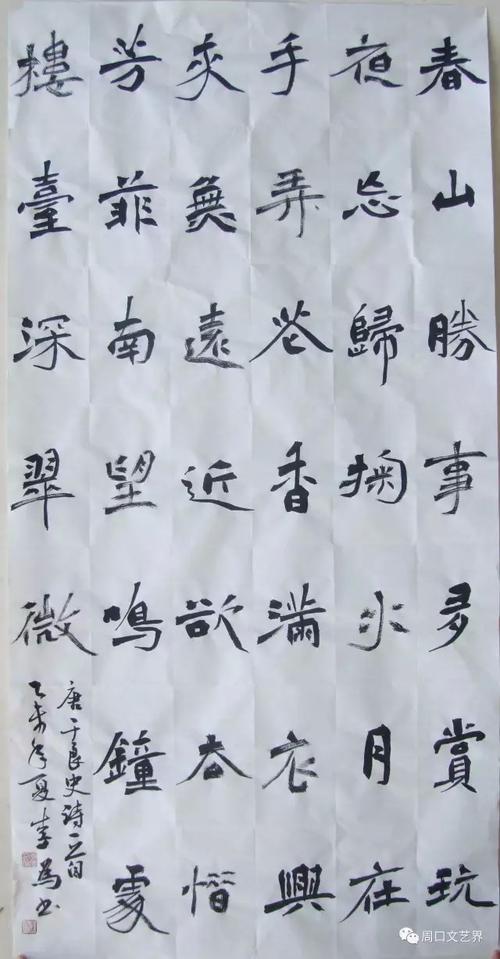 春山勝事多賞玩
夜忘歸掬水月在
手弄花香滿衣興
來無遠近欲去惜
芳菲南望鳴鐘處
樓臺深翠微
唐于良史詩一首
乙未年夏李為书
周口文艺界